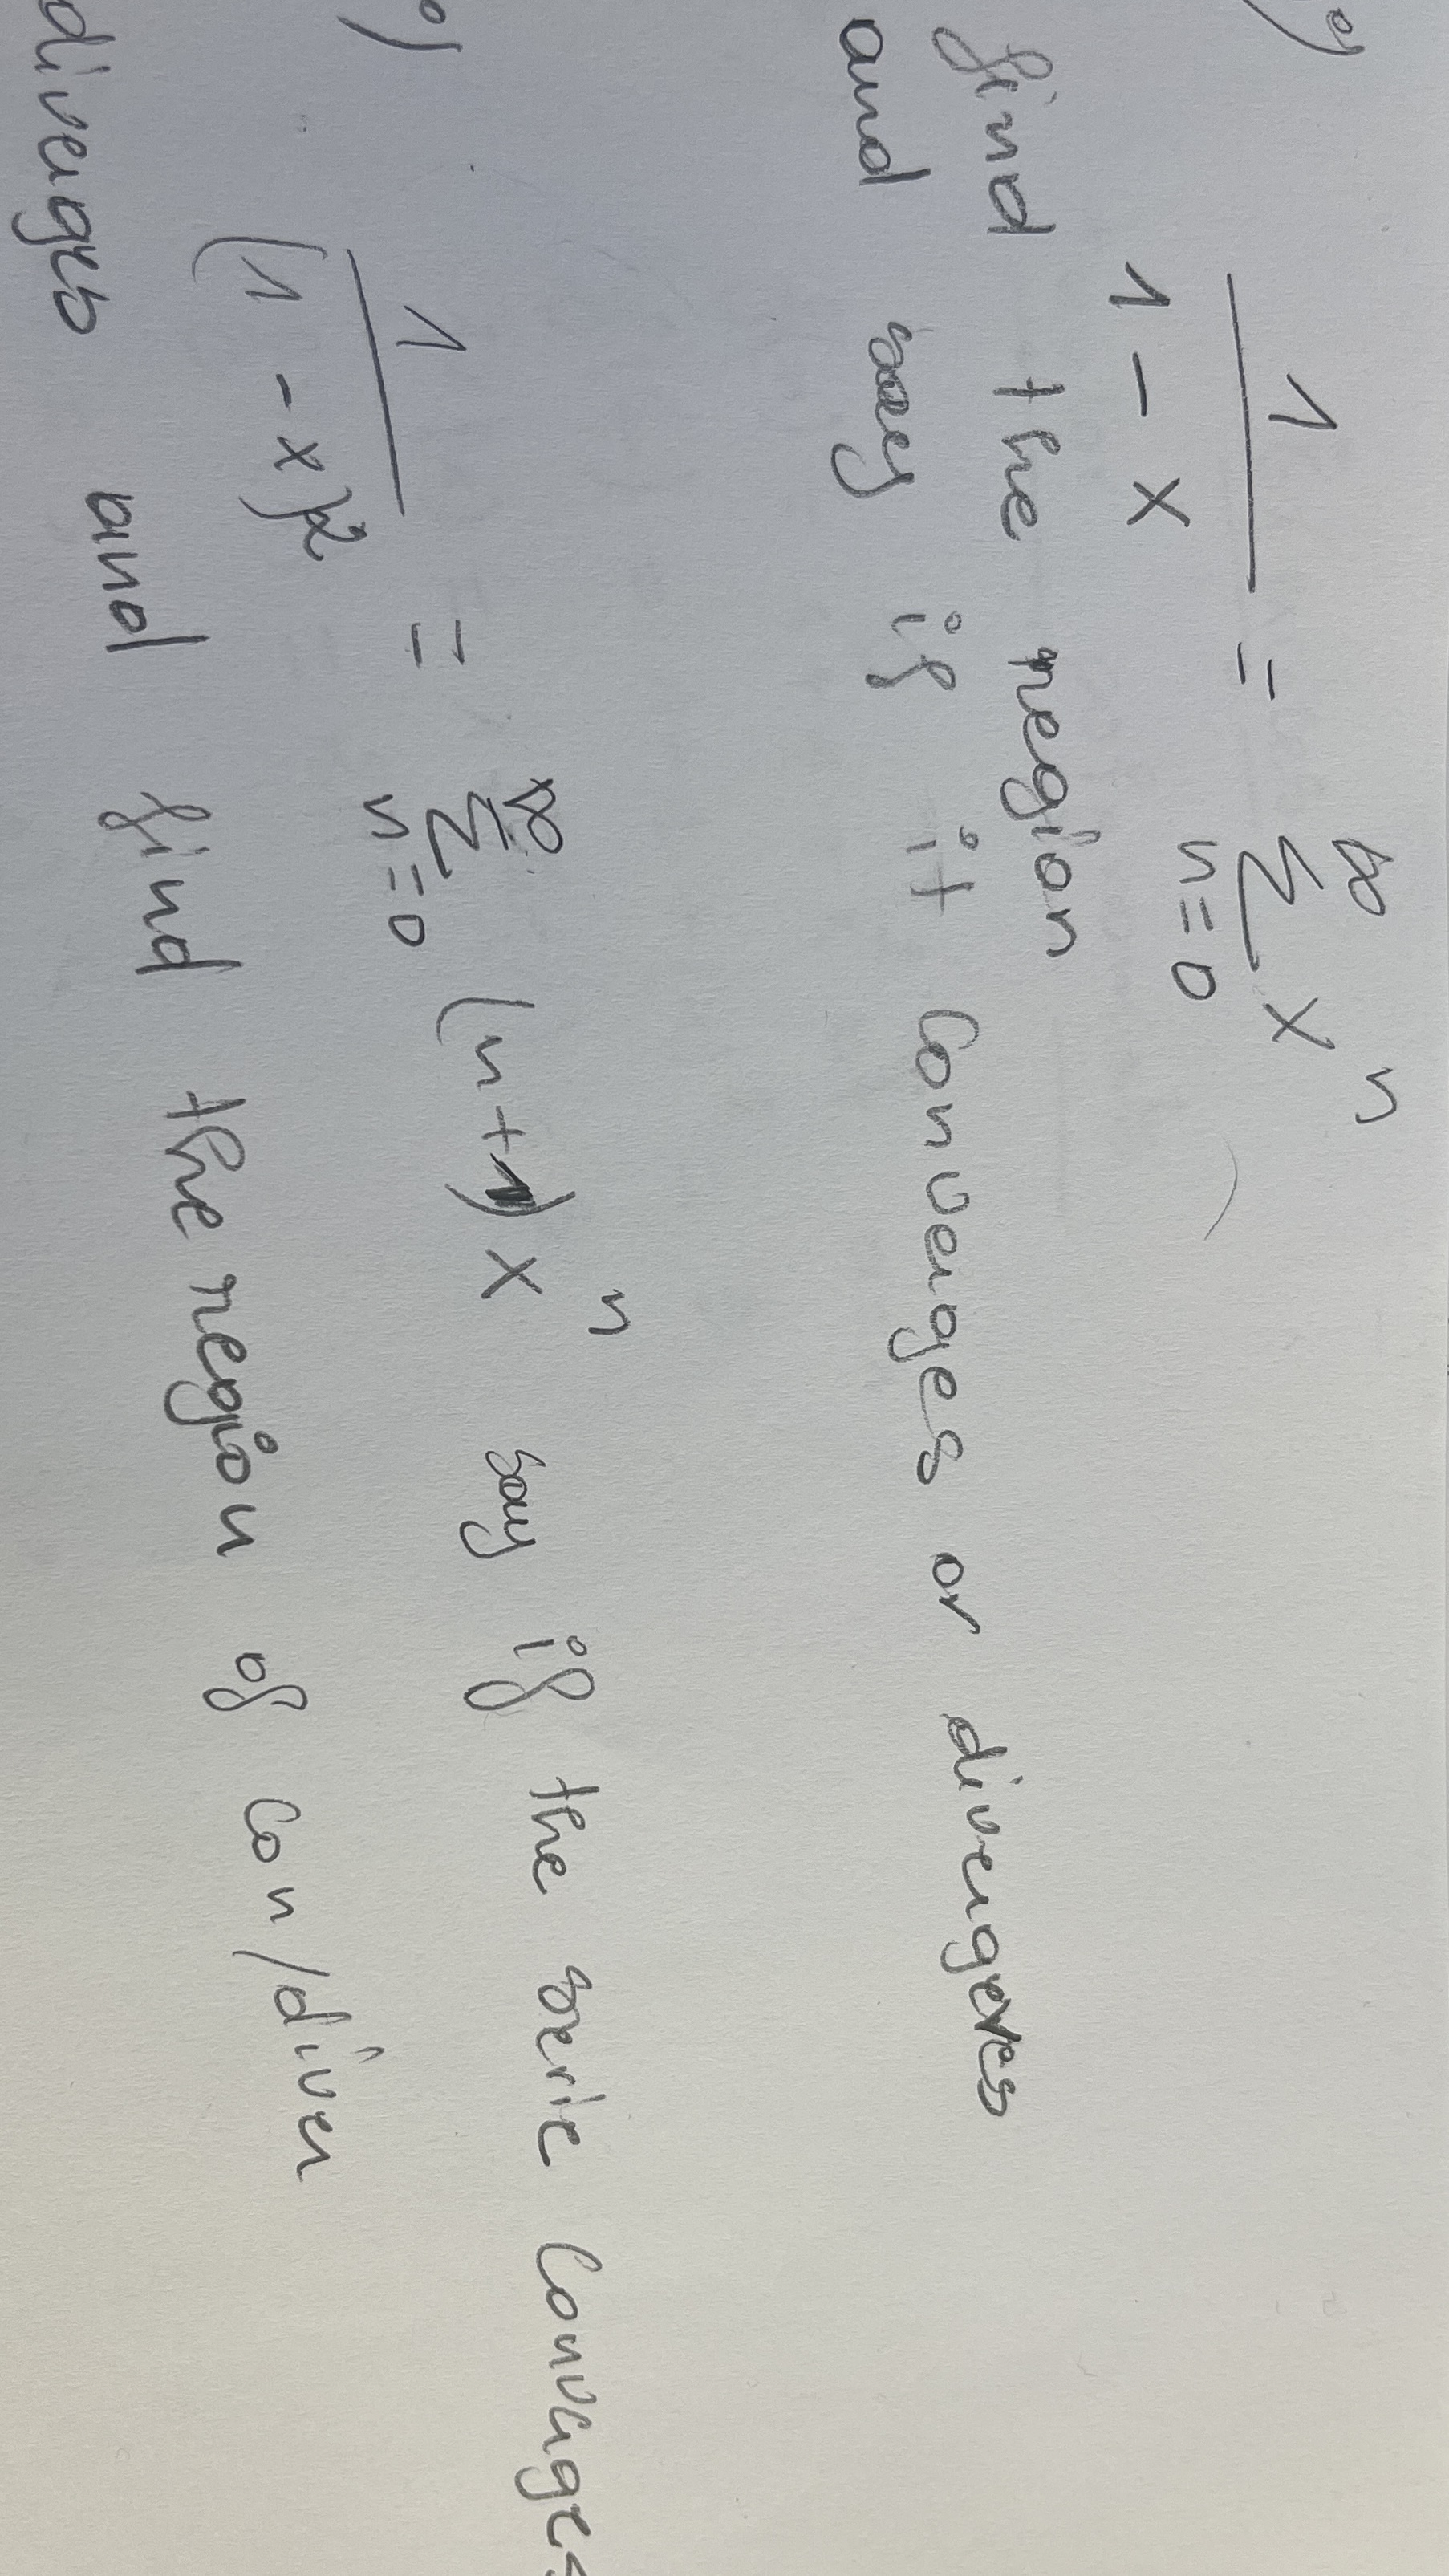 1/(1 - x) = ∞ Σ n=0 x^n
find the region
and say if it converges or diverges
1/(1 - x)² = ∞ Σ n=0 (n+1) x^n say if the serie converges
diverges and find the region of con/diver